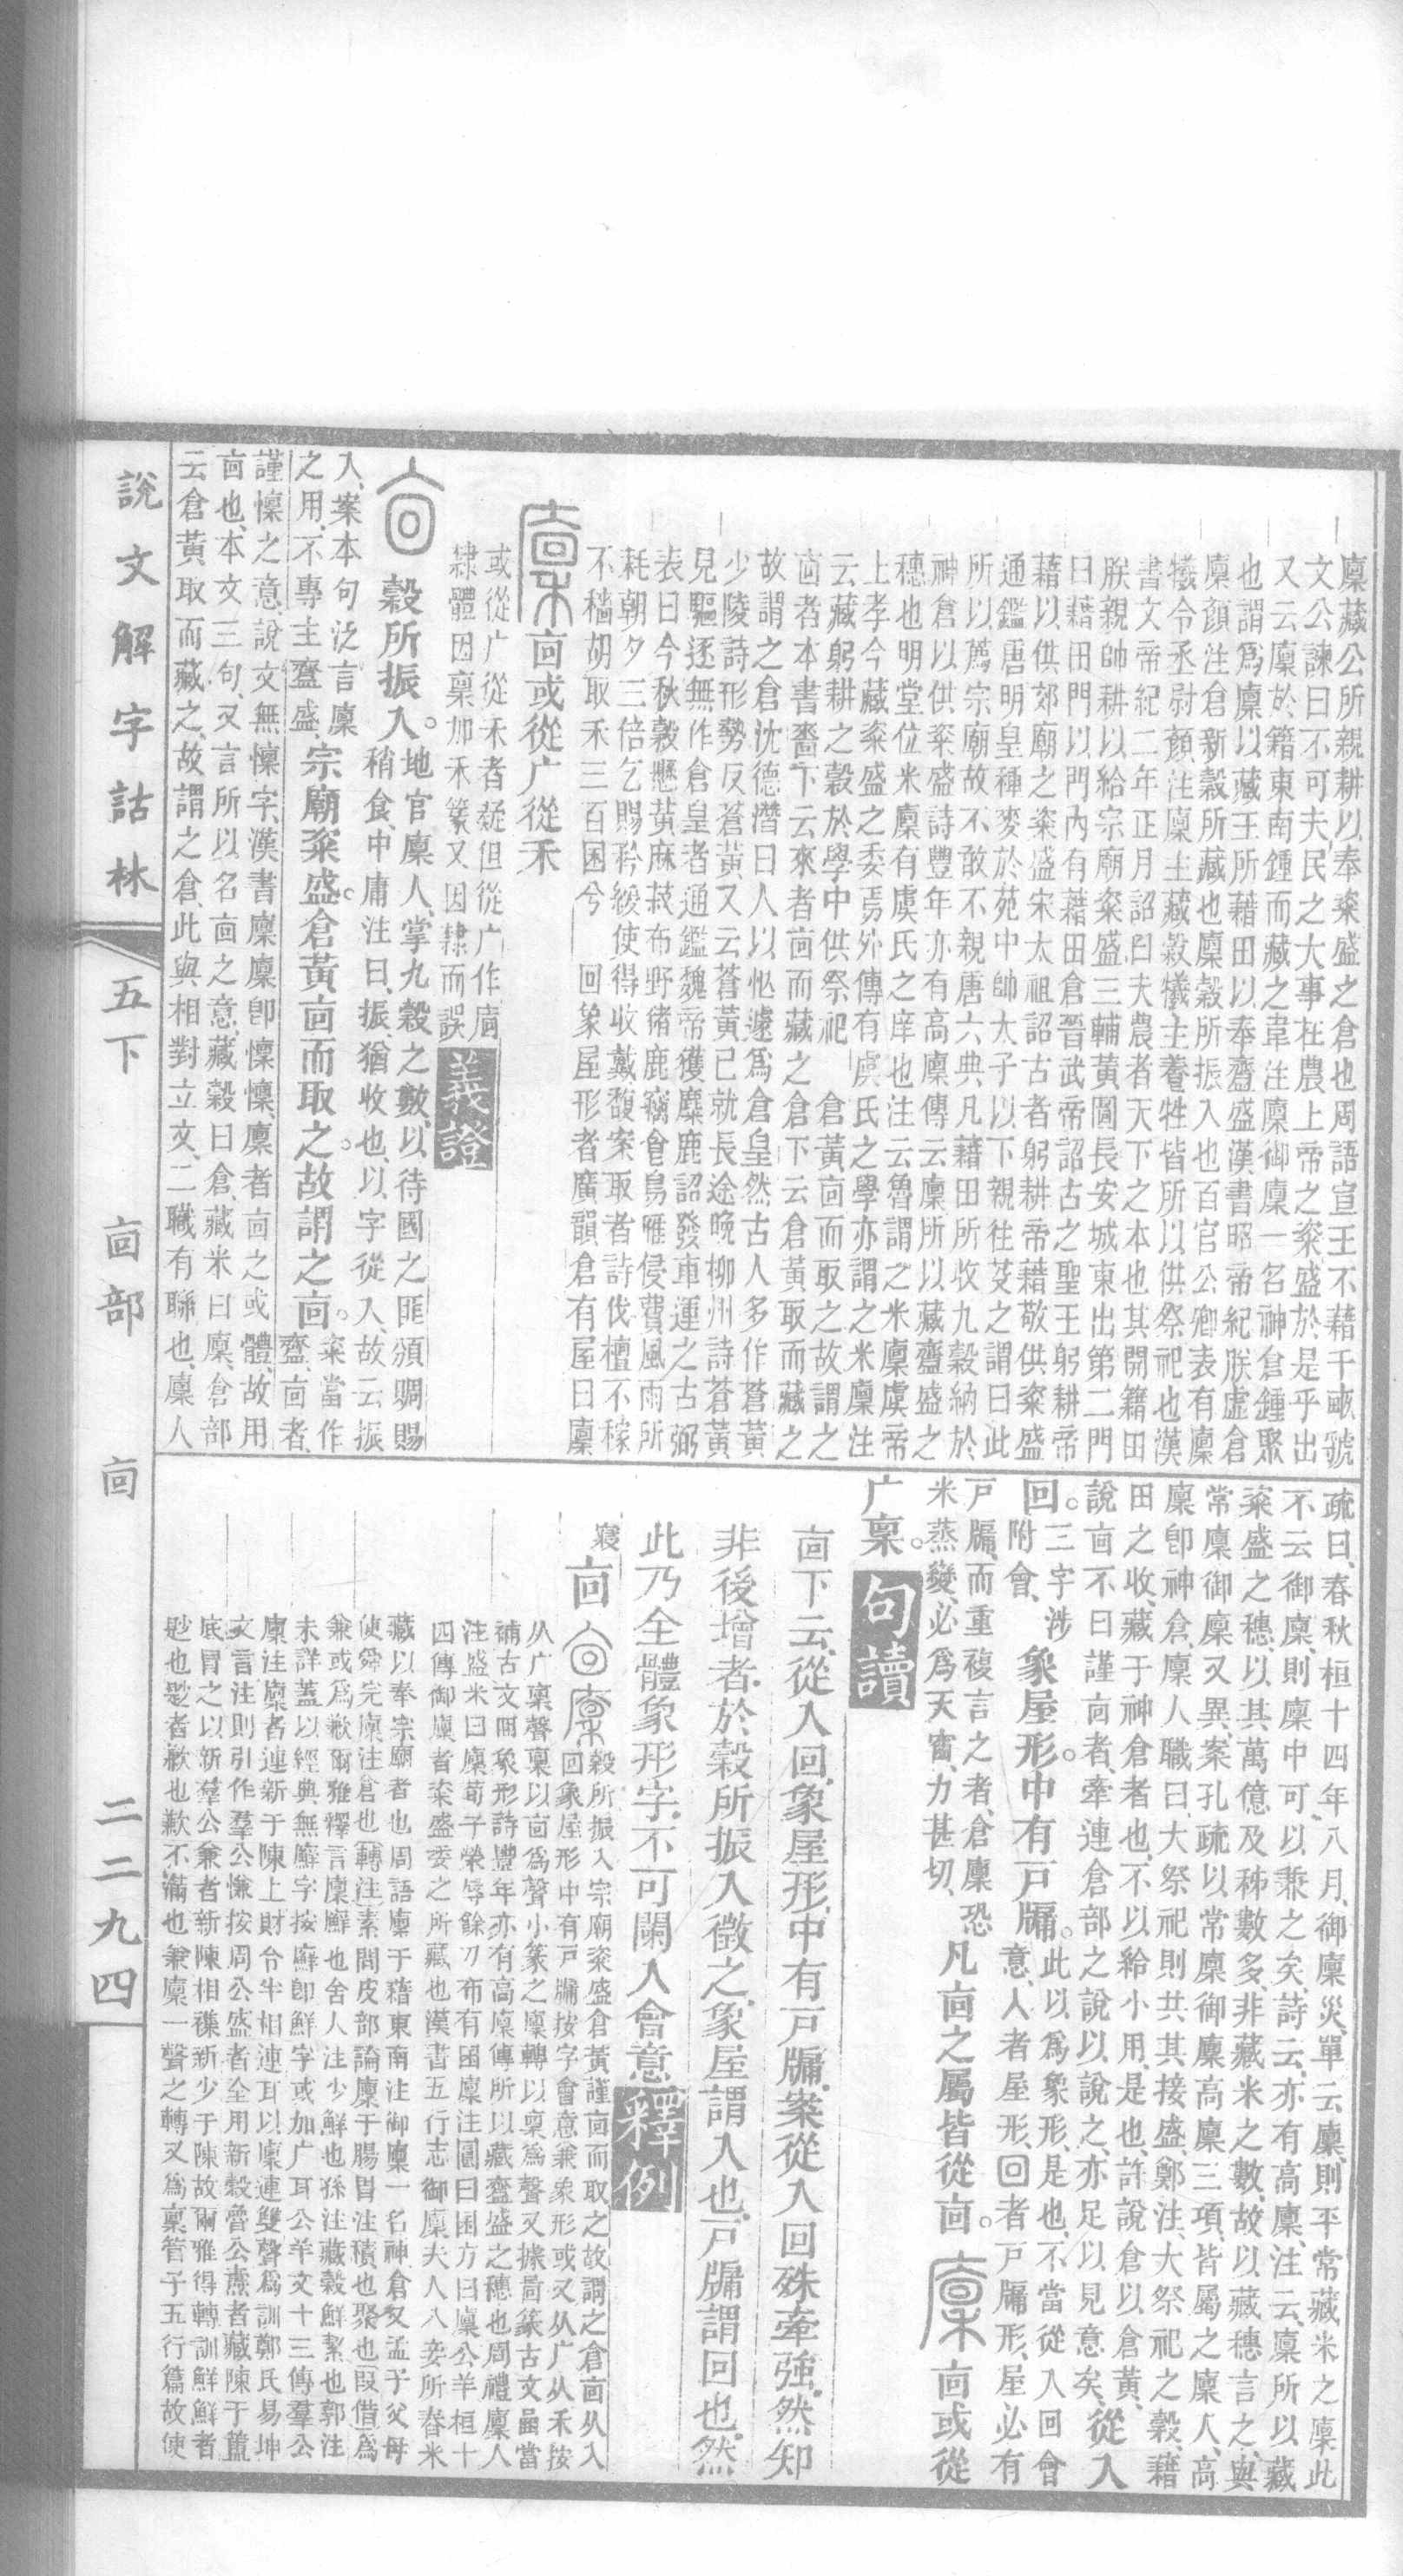 廩藏公所親耕以奉粢盛之倉也周語宣王不藉千畝虢
文公諫曰不可夫民之大事在農上帝之粢盛於是乎出
又云廩於籍東南鍾而藏之韋注廩御廩一名神倉鍾聚
也謂爲廩以藏王所藉田以奉齍盛漢書昭帝紀朕虛倉
廩顏注倉新穀所藏也廩穀所振入也百官公卿表有廩
犧令丞尉顏注廩主藏穀犧主養牲皆所以供祭祀也漢
書文帝紀二年正月詔曰夫農者天下之本也其開籍田
朕親帥耕以給宗廟粢盛三輔黃圖長安城東出第二門
曰藉田門以門內有藉田倉晉武帝詔古之聖王躬耕帝
藉以供郊廟之粢盛宋太祖詔古者躬耕帝藉敬供粢盛
通鑑唐明皇種麥於苑中帥太子以下親往芟之謂曰此
所以薦宗廟故不敢不親唐六典凡藉田所收九穀納於
神倉以供粢盛詩豐年亦有高廩傳云廩所以藏齍盛之
穗也明堂位米廩有虞氏之庠也注云魯謂之米廩虞帝
上孝今藏粢盛之委焉外傳有虞氏之學亦謂之米廩注
云藏躬耕之穀於學中供祭祀　倉黃㐭而取之故謂之
㐭者本書嗇下云來者㐭而藏之倉下云倉黃取而藏之
故謂之倉沈德潛曰人以怱遽爲倉皇然古人多作蒼黃
少陵詩形勢反蒼黃又云蒼黃已就長途晚柳州詩蒼黃
見驅逐無作倉皇者通鑑魏帝獲麋鹿詔發車運之古弼
表曰今秋穀懸黃麻菽布野豬鹿竊食鳥雁侵費風雨所
耗朝夕三倍乞賜矜緩使得收戴馥案取者詩伐檀不稼
不穡胡取禾三百囷兮　回象屋形者廣韻倉有屋曰廩
㐭或從广從禾
或從广從禾者疑但從广作㢠
隸體因稟加禾篆又因隸而誤
義證
穀所振入。
地官廩人掌九穀之數以待國之匪頒賙賜
稍食中庸注曰振猶收也以字從入故云振
入案本句泛言廩
之用不專主齍盛
宗廟粢盛。倉黃㐭而取之。故謂之㐭。
粢當作
齍㐭者
謹懍之意說文無懍字漢書廩廩卽懍懍廩者㐭之或體故用
㐭也本文三句又言所以名㐭之意藏穀曰倉藏米曰廩倉部
云倉黃取而藏之故謂之倉此與相對立文二職有聯也廩人
疏曰春秋桓十四年八月御廩災單云廩則平常藏米之廩此
不云御廩則廩中可以兼之矣詩云亦有高廩注云廩所以藏
粢盛之穗以其萬億及秭數多非藏米之數故以藏穗言之與
常廩御廩又異案孔疏以常廩御廩高廩三項皆屬之廩人高
廩卽神倉廩人職曰大祭祀則共其接盛鄭注大祭祀之穀藉
田之收藏于神倉者也不以給小用是也許說倉以倉黃
說㐭不曰謹㐭者牽連倉部之說以說之亦足以見意矣
從入
回。
三字涉
附會
象屋形。中有戶牖。
此以爲象形是也不當從入回會
意入者屋形回者戶牖形屋必有
戶牖而重複言之者倉廩恐
米蒸變必爲天窗力甚切
凡㐭之屬皆從㐭。
㐭或從
广稟。
句讀
㐭下云從入回象屋形中有戶牖案從入回殊牽強然知
非後增者於穀所振入徵之象屋謂入也戶牖謂回也然
此乃全體象形字不可闌入會意
釋例
㐭
穀所振入宗廟粢盛倉黃謹㐭而取之故謂之倉㐭从入
回象屋形中有戶牖按字會意兼象形或又从广从禾按
从广稟聲稟以㐭爲聲小篆之廩轉以稟爲聲又據啚篆古文當
補古文象形詩豐年亦有高廩傳所以藏齍盛之穗也周禮廩人
注盛米曰廩荀子榮辱餘刀布有囷廩注圜曰囷方曰廩公羊桓十
四傳御廩者粢盛委之所藏也漢書五行志御廩夫人八妾所舂米
藏以奉宗廟者也周語廩于藉東南注御廩一名神倉又孟子父母
使舜完廩注倉也轉注素問皮部論廩于腸胃注積也聚也叚借爲
兼或爲歉爾雅釋言廩廯也舍人注少鮮也孫注藏穀鮮絜也郭注
未詳蓋以經典無廯字按廯卽鮮字或加广耳公羊文十三傳羣公
廩注廩者連新于陳上財令半相連耳以廩連雙聲爲訓鄭氏易坤
文言注則引作羣公慊按周公盛者全用新穀魯公燾者藏陳于簠
底冒之以新羣公兼者新陳相襍新少于陳故爾雅得轉訓鮮鮮者
尟也尟者歉也歉不滿也兼廩一聲之轉又爲稟管子五行篇故使
說文解字詁林
五下
㐭部
㐭
二二九四